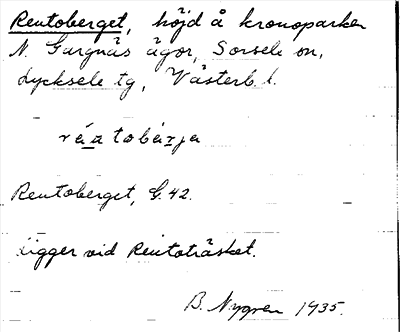 Rentoberget, höjd å kronoparken
N. Gargnäs ägor, Sorsele sn,
Lycksele tg, Västerb. l.
Rentoberget, G.42.
Ligger vid Rentoträsket.
B. Nygren 1935.